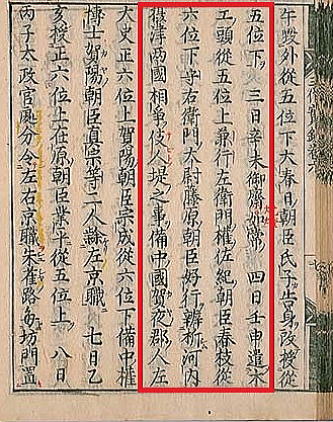 午毀外從五位下大春日朝臣氏子告身改授從
五位下　三日辛未御齋如常　四日壬申遣木
工頭從五位上兼行左衛門權佐紀朝臣春枝從
六位下守右衛門大尉藤原朝臣好行辨析河内
攝津兩國相爭伎人堤之事備中國賀夜郡人左
大史正六位上賀陽朝臣宗成從六位下備中權
博士賀陽朝臣眞宗等二人隸左京職　七日乙
亥授正六位上在原朝臣業平從五位上　八日
丙子太政官處分令左右京職朱雀路毎坊門置